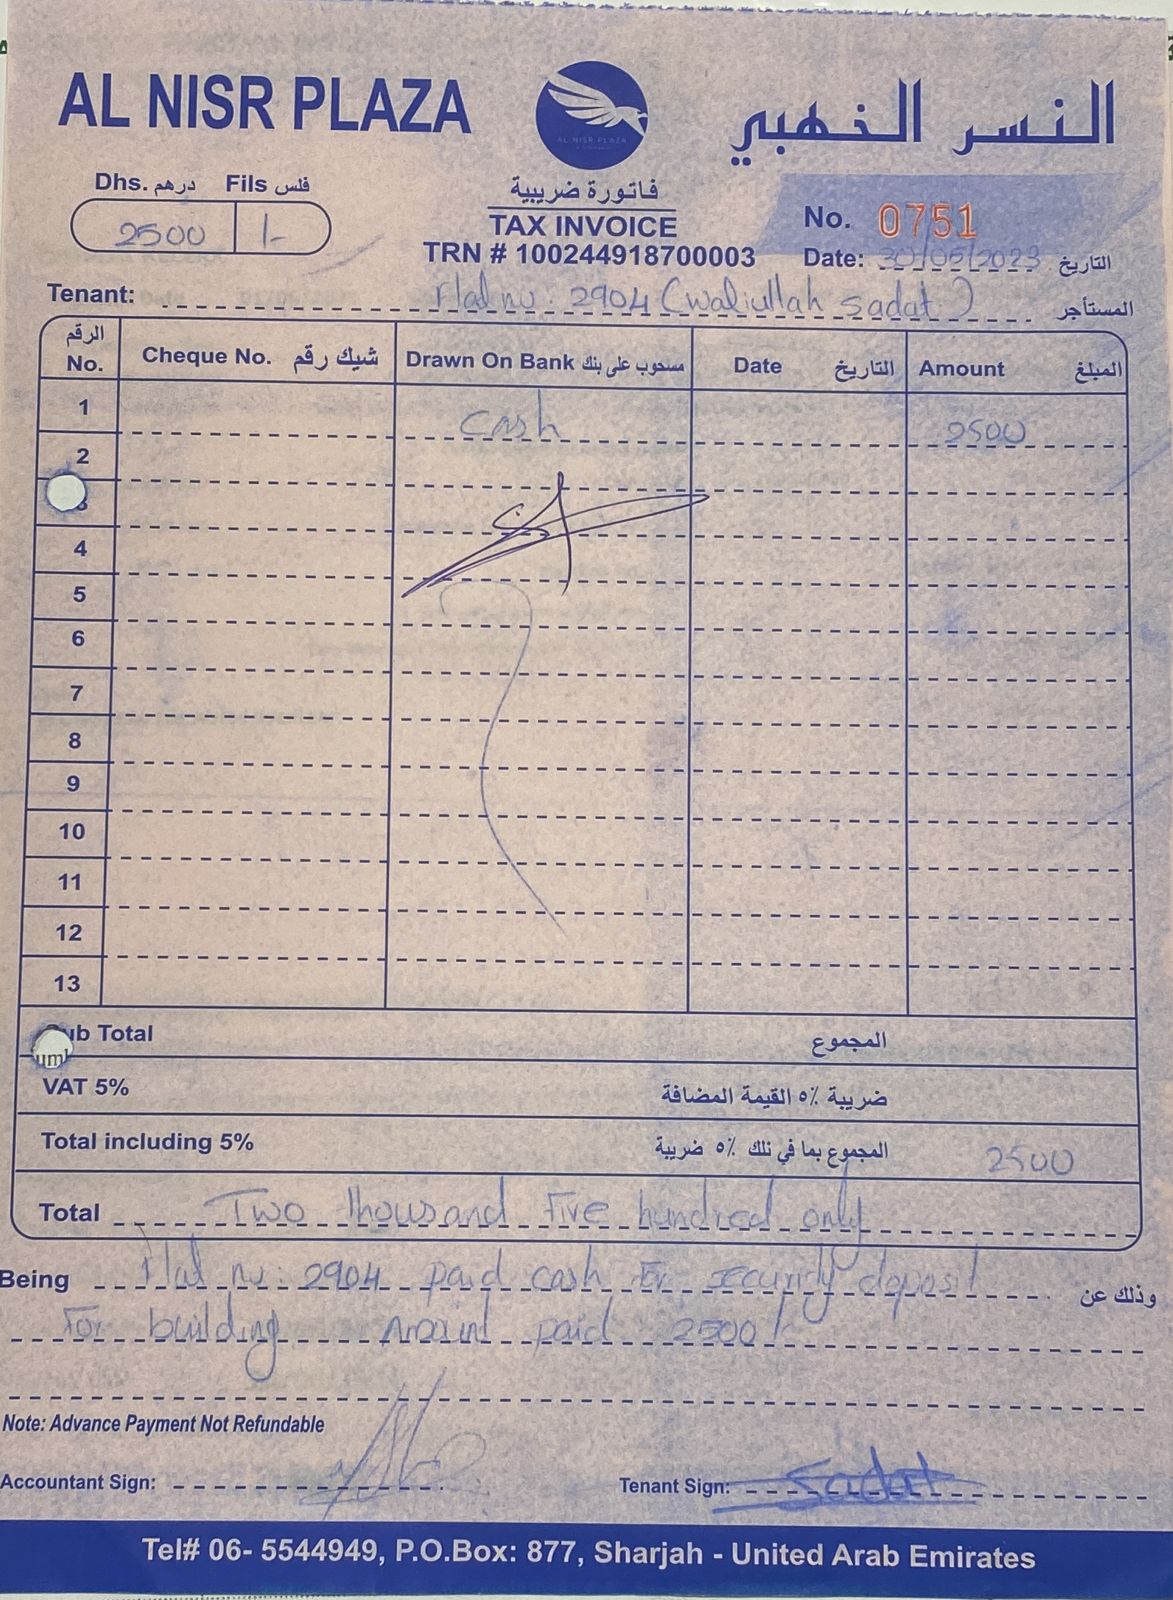 AL NISR PLAZA
النسر الذهبي
AL NISR PLAZA
Dhs. درهم Fils فلس
2500 /-
فاتورة ضريبية
TAX INVOICE
TRN # 100244918700003
No. 0751
Date: 30/05/2023 التاريخ
Tenant: Flat no: 2904 (waliullah sadat) المستأجر
الرقم No. Cheque No. شيك رقم Drawn On Bank مسحوب على بنك Date التاريخ Amount المبلغ
1 Cash 2500
2
3
4
5
6
7
8
9
10
11
12
13
Sub Total المجموع
VAT 5% ضريبة ٥٪ القيمة المضافة
Total including 5% المجموع بما في ذلك ٥٪ ضريبة 2500
Total Two thousand Five hundred only
Being Flat no: 2904 paid cash For security deposit وذلك عن
For building Amount paid 2500/-
Note: Advance Payment Not Refundable
Accountant Sign:
Tenant Sign: Sadat
Tel# 06- 5544949, P.O.Box: 877, Sharjah - United Arab Emirates